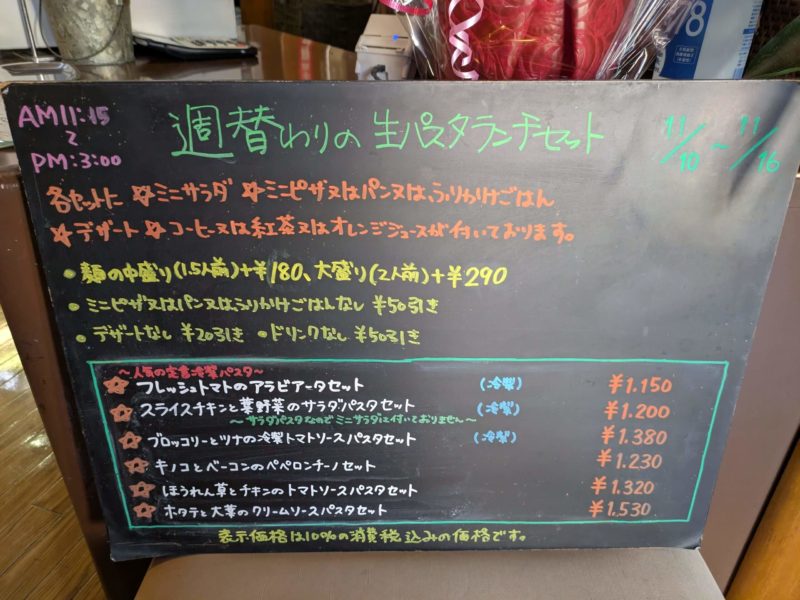 AM11:15
~
PM:3:00
週替わりの生パスタランチセット
11/10～11/16
各セットに ☆ミニサラダ ☆ミニピザ又はパン又は、ふりかけごはん
☆デザート ☆コーヒー又は紅茶又はオレンジジュースが付いております。
・麺の中盛り(1.5人前)+¥180、大盛り(2人前)+¥290
・ミニピザ又はパン又はふりかけごはんなし ¥50引き
・デザートなし ¥20引き ・ドリンクなし ¥50引き
～人気の定番冷製パスタ～
☆フレッシュトマトのアラビアータセット (冷製) ¥1.150
☆スライスチキンと葉野菜のサラダパスタセット (冷製) ¥1.200
～サラダパスタなのでミニサラダは付いておりません～
☆ブロッコリーとツナの冷製トマトソースパスタセット (冷製) ¥1.380
☆キノコとベーコンのペペロンチーノセット ¥1.230
☆ほうれん草とチキンのトマトソースパスタセット ¥1.320
☆ホタテと大葉のクリームソースパスタセット ¥1.530
表示価格は10%の消費税込みの価格です。